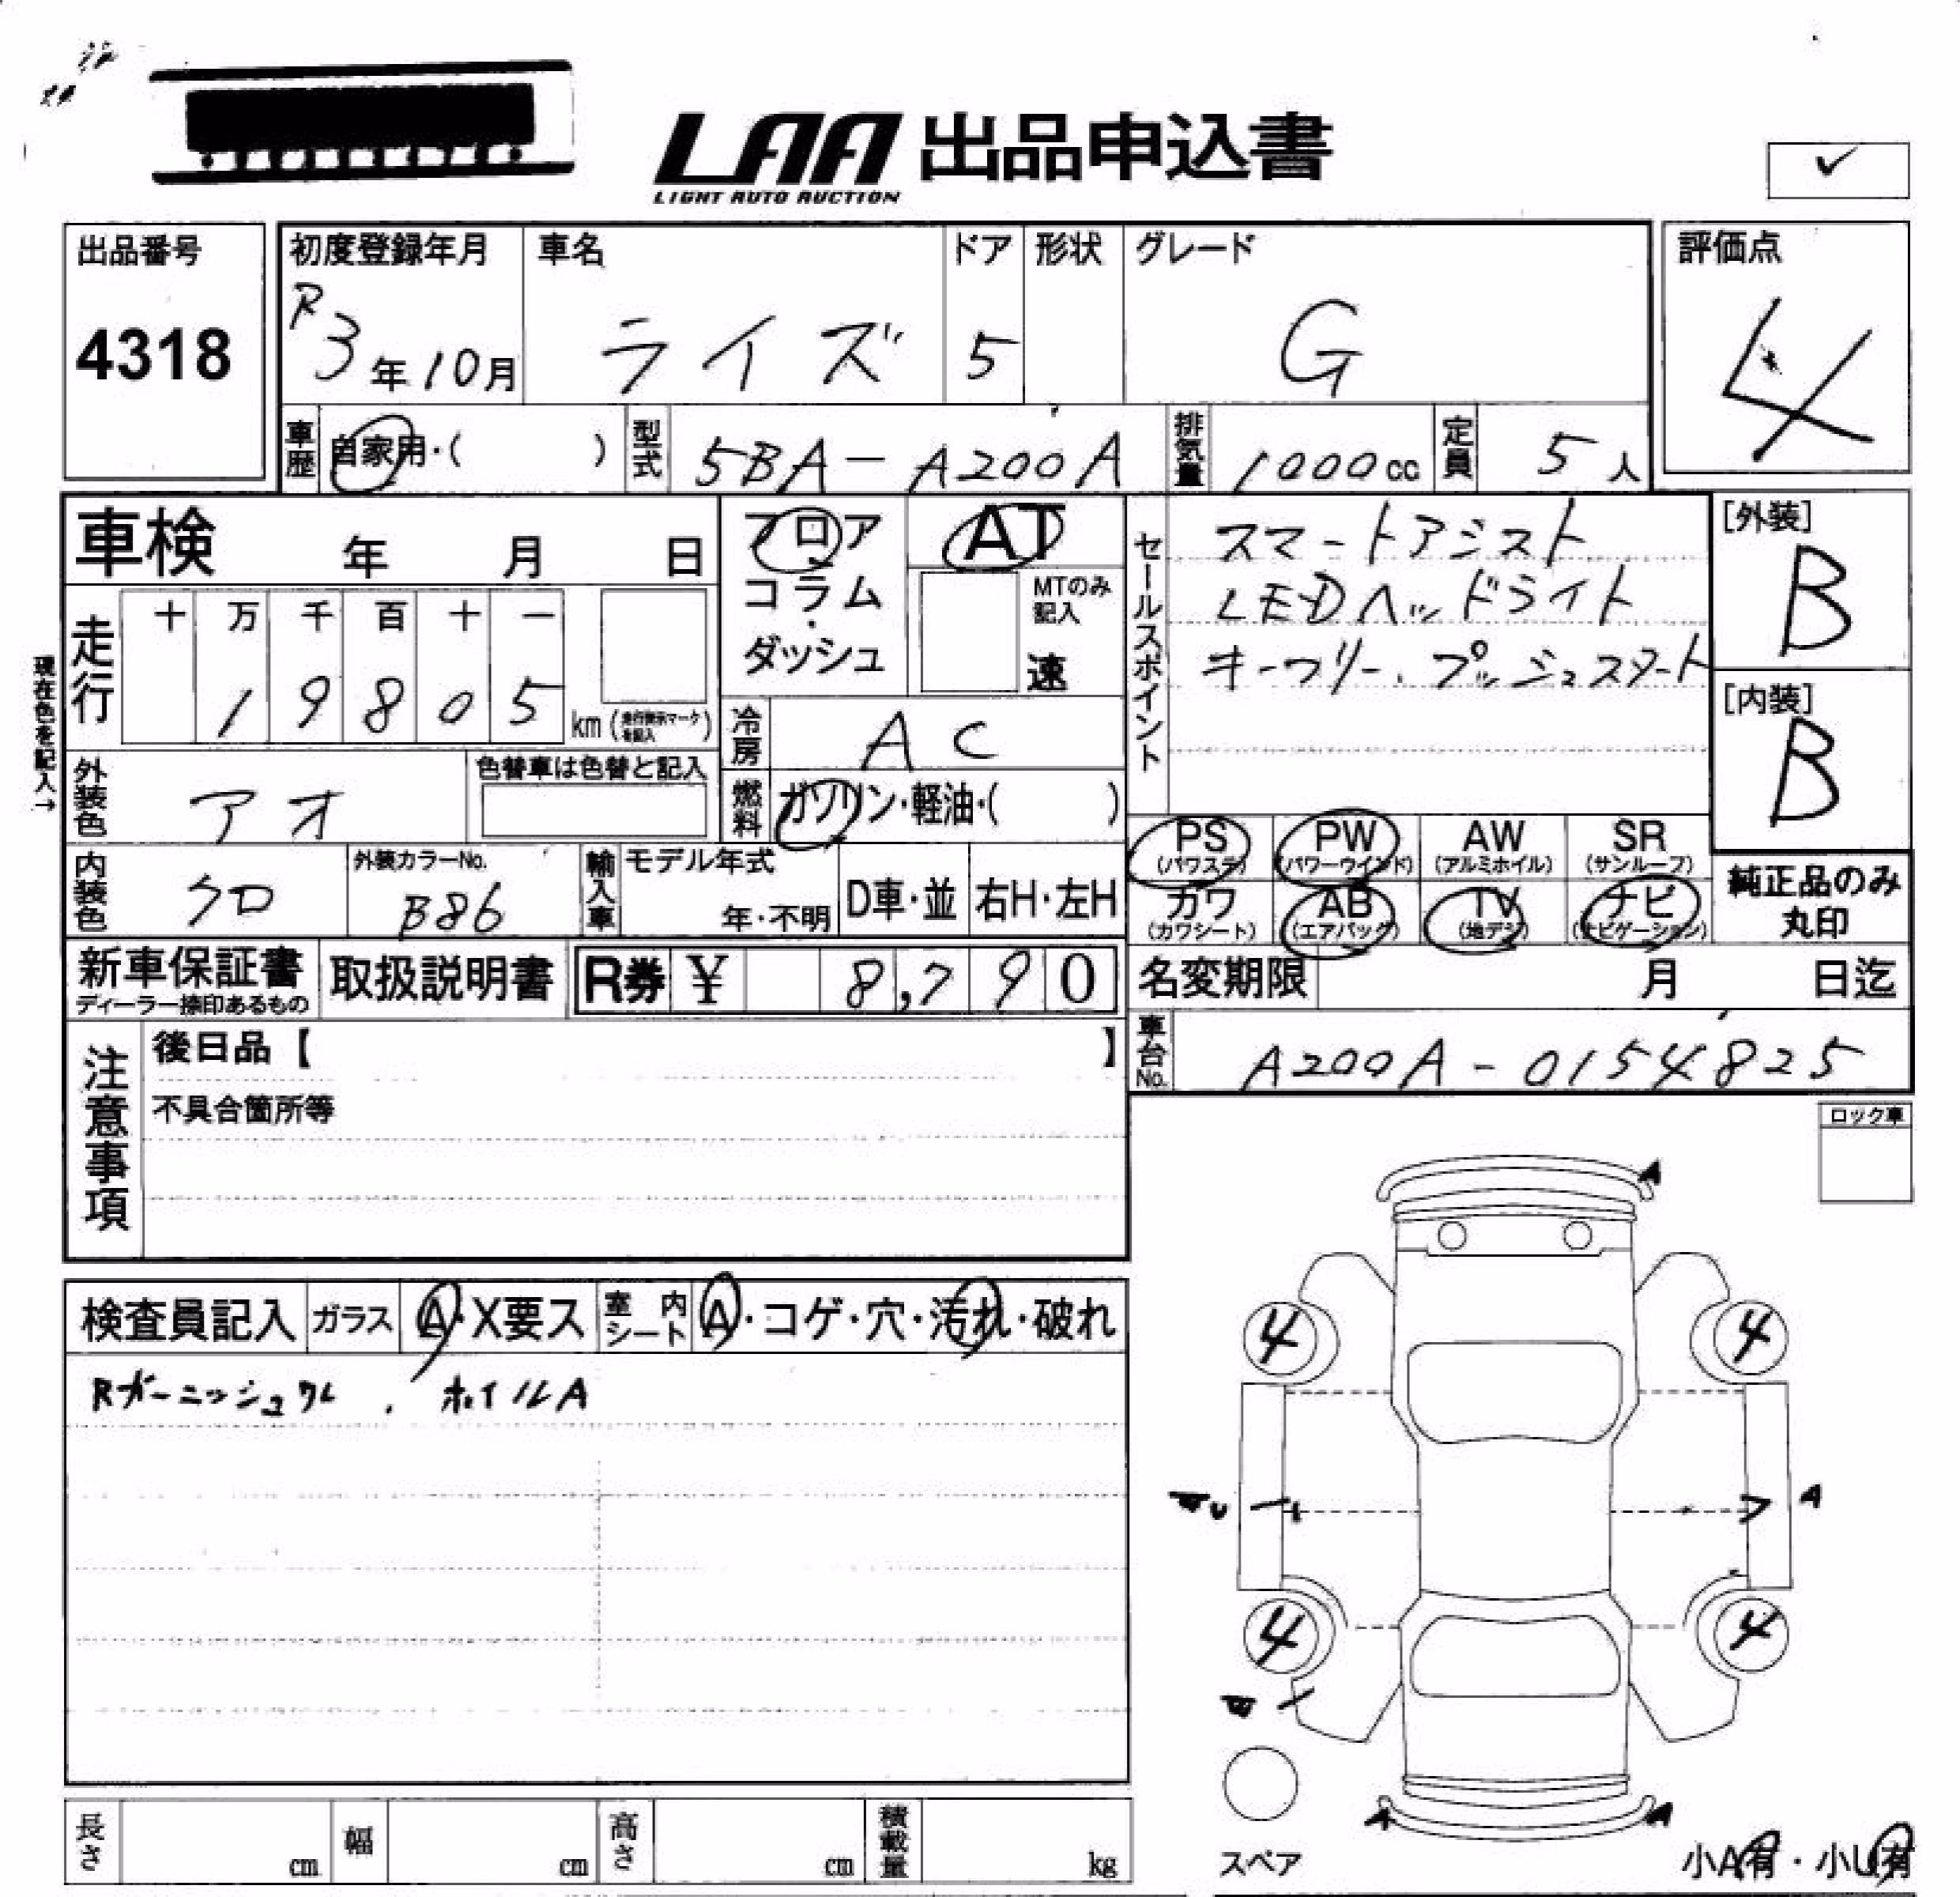 LAA 出品申込書
LIGHT AUTO AUCTION
✓
出品番号
4318
初度登録年月
R3年10月
車名
ライズ
ドア
5
形状
グレード
G
評価点
4
車歴
自家用・( )
型式
5BA-A200A
排気量
1000cc
定員
5人
車検 年 月 日
フロア
コラム・
ダッシュ
AT
MTのみ
記入
速
セールスポイント
スマートアシスト
LEDヘッドライト
キーフリー、プッシュスタート
[外装]
B
[内装]
B
現在色を記入→
走行
十 万 千 百 十 一
1 9 8 0 5
km(走行表示マークを記入)
冷房
AC
外装色
アオ
色替車は色替と記入
燃料
ガソリン・軽油・( )
PS
(パワステ)
PW
(パワーウインド)
AW
(アルミホイル)
SR
(サンルーフ)
内装色
クロ
外装カラーNo.
B86
輸入車
モデル年式
年・不明
D車・並
右H・左H
カワ
(カワシート)
AB
(エアバッグ)
TV
(地デジ)
ナビ
(ナビゲーション)
純正品のみ
丸印
新車保証書
ディーラー捺印あるもの
取扱説明書
R券 ¥ 8,790
名変期限 月 日迄
注意事項
後日品【 】
不具合箇所等
車台No.
A200A-0154825
ロック車
検査員記入
ガラス
A・X要ス
室内シート
A・コゲ・穴・汚れ・破れ
Rガーニッシュワレ、ホイルA
A
4 4
U
A
4 4
A A
スペア
小A有・小U有
長さ cm
幅 cm
高さ cm
積載量 kg